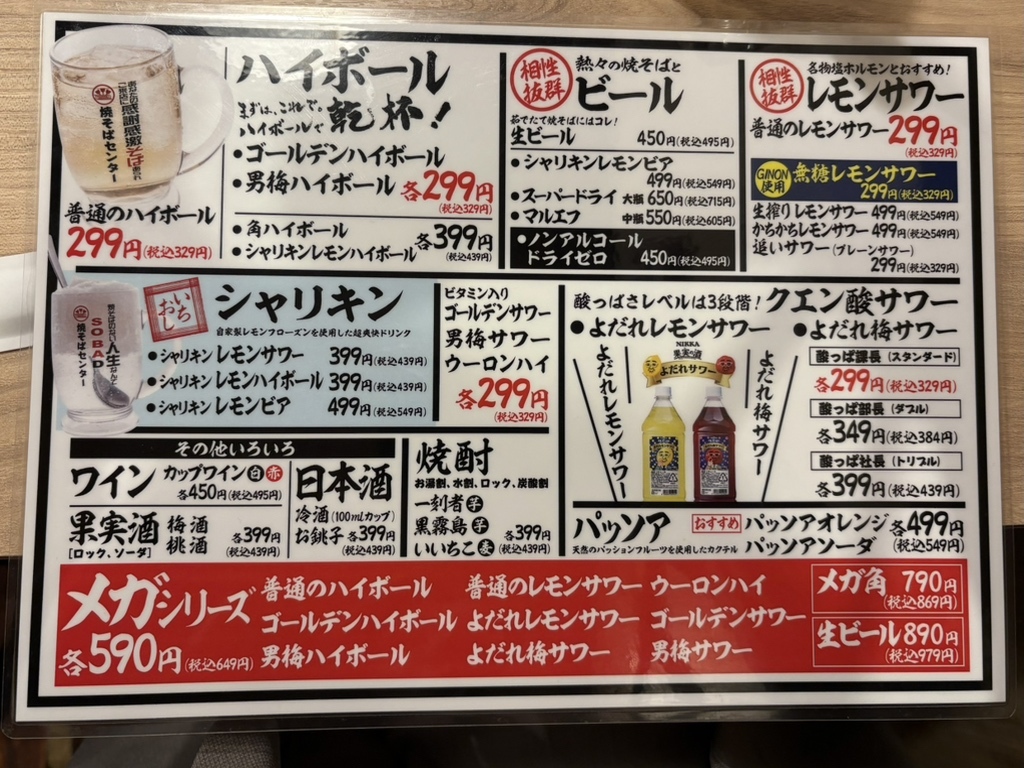 焼そばセンター
普通のハイボール
299円(税込329円)
ハイボール
まずは、これで。
ハイボールで 乾杯!
•ゴールデンハイボール
•男梅ハイボール 各299円
(税込329円)
•角ハイボール
•シャリキンレモンハイボール
各399円
(税込439円)
相性抜群
熱々の焼そばと
ビール
茹でたて焼そばにはコレ!
生ビール 450円(税込495円)
•シャリキンレモンビア
499円(税込549円)
•スーパードライ 大瓶 650円(税込715円)
•マルエフ 中瓶 550円(税込605円)
•ノンアルコール
ドライゼロ 450円(税込495円)
相性抜群
名物塩ホルモンとおすすめ!
レモンサワー
普通のレモンサワー 299円
(税込329円)
GINON使用
無糖レモンサワー
299円(税込329円)
生搾りレモンサワー 499円(税込549円)
かちかちレモンサワー 499円(税込549円)
追いサワー (プレーンサワー)
299円(税込329円)
SO BAD
人生
焼そばセンター
いちおし
シャリキン
自家製レモンフローズンを使用した超爽快ドリンク
•シャリキン レモンサワー 399円(税込439円)
•シャリキン レモンハイボール 399円(税込439円)
•シャリキン レモンビア 499円(税込549円)
ビタミン入り
ゴールデンサワー
男梅サワー
ウーロンハイ
各299円
(税込329円)
酸っぱさレベルは3段階! クエン酸サワー
•よだれレモンサワー •よだれ梅サワー
よだれレモンサワー
NIKKA
果実の酒
よだれサワー
よだれ梅サワー
酸っぱ課長(スタンダード)
各299円(税込329円)
酸っぱ部長(ダブル)
各349円(税込384円)
酸っぱ社長(トリプル)
各399円(税込439円)
その他いろいろ
ワイン カップワイン 白 赤
各450円(税込495円)
果実酒 梅酒
[ロック、ソーダ] 桃酒
各399円
(税込439円)
日本酒
冷酒(100mlカップ)
お銚子 各399円
(税込439円)
焼酎
お湯割、水割、ロック、炭酸割
一刻者 芋
黒霧島 芋
いいちこ 麦
各399円
(税込439円)
パッソア
天然のパッションフルーツを使用したカクテル
おすすめ
パッソアオレンジ
パッソアソーダ
各499円
(税込549円)
メガシリーズ
各590円(税込649円)
普通のハイボール 普通のレモンサワー ウーロンハイ
ゴールデンハイボール よだれレモンサワー ゴールデンサワー
男梅ハイボール よだれ梅サワー 男梅サワー
メガ角 790円
(税込869円)
生ビール 890円
(税込979円)